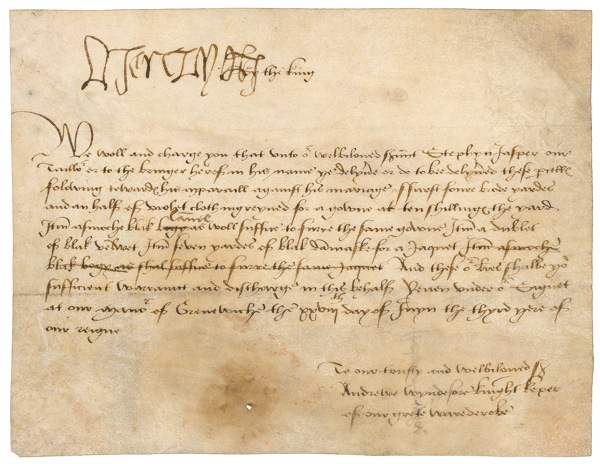 Henry R By the king
We woll and charge you that unto oʳ welbiloved sʳunt Stephyn Jasper our
Tailloʳ or to the bringer herof in his name ye delyvʳe or do to be delyvʳed these pcells
folowing towardes his apparaill agaynst his mariage ffurst foure brode yardes
and an half of violet cloth ingreyned for a gowne at ten shillinges the yard
Itm asmoche blak bogy lambe as woll suffice to furre the same gowne Itm a dublet
of blak velwet Itm seven yardes of blak damaske for a Jaquet Itm asmoche
blak bogy as shal suffice to furre the same Jaquet And these oʳ lres shalbe yoʳ
sufficient warrannt and discharge in this behalf Yeven undre oʳ Signet
at our Manoʳ of Grenewiche the xxviijth day of Juyn the thyrd yere of
our reigne
To our trusty and welbiloved
Andrewe Wyndesore knight keper
of our grete warederobe